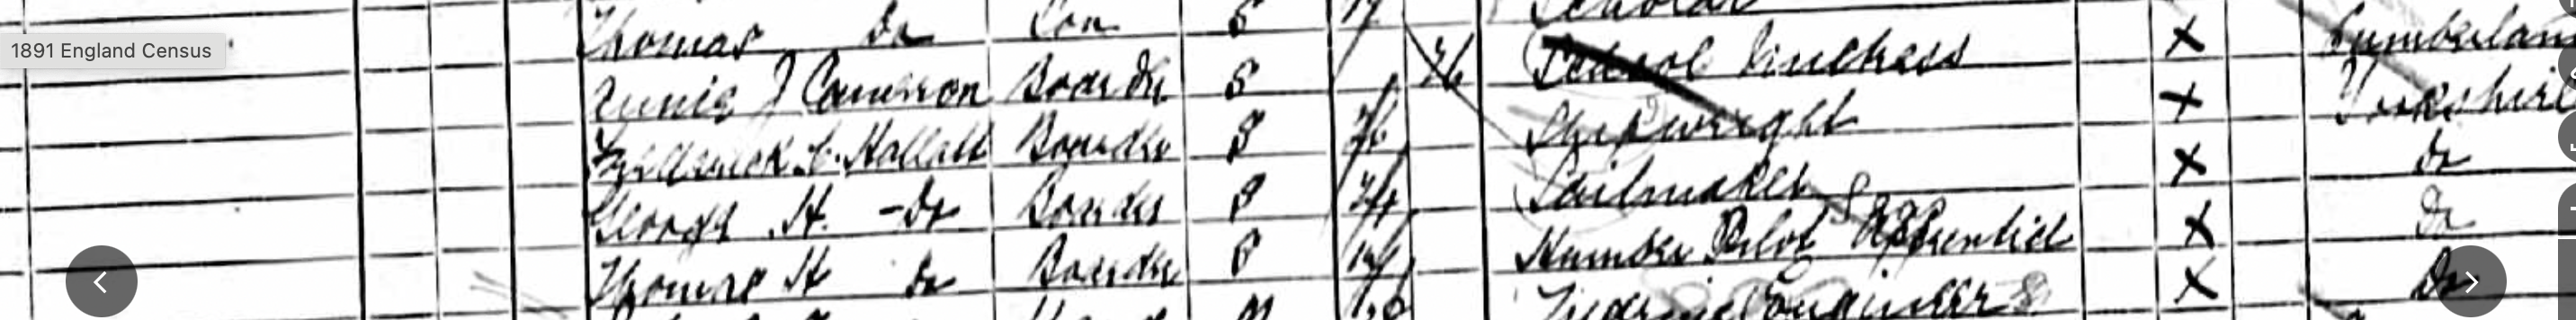 Thomas Do Son S 17 Scholar X Cumberland
1891 England Census
Annie J Cameron Boarder S 26 School Mistress X Yorkshire
Frederick C. Hallatt Boarder S 26 Shipwright X Do
George H. - Do Boarder S 24 Sailmaker X Do
Thomas H Do Boarder S 19 Humber Pilot Apprentice X Do